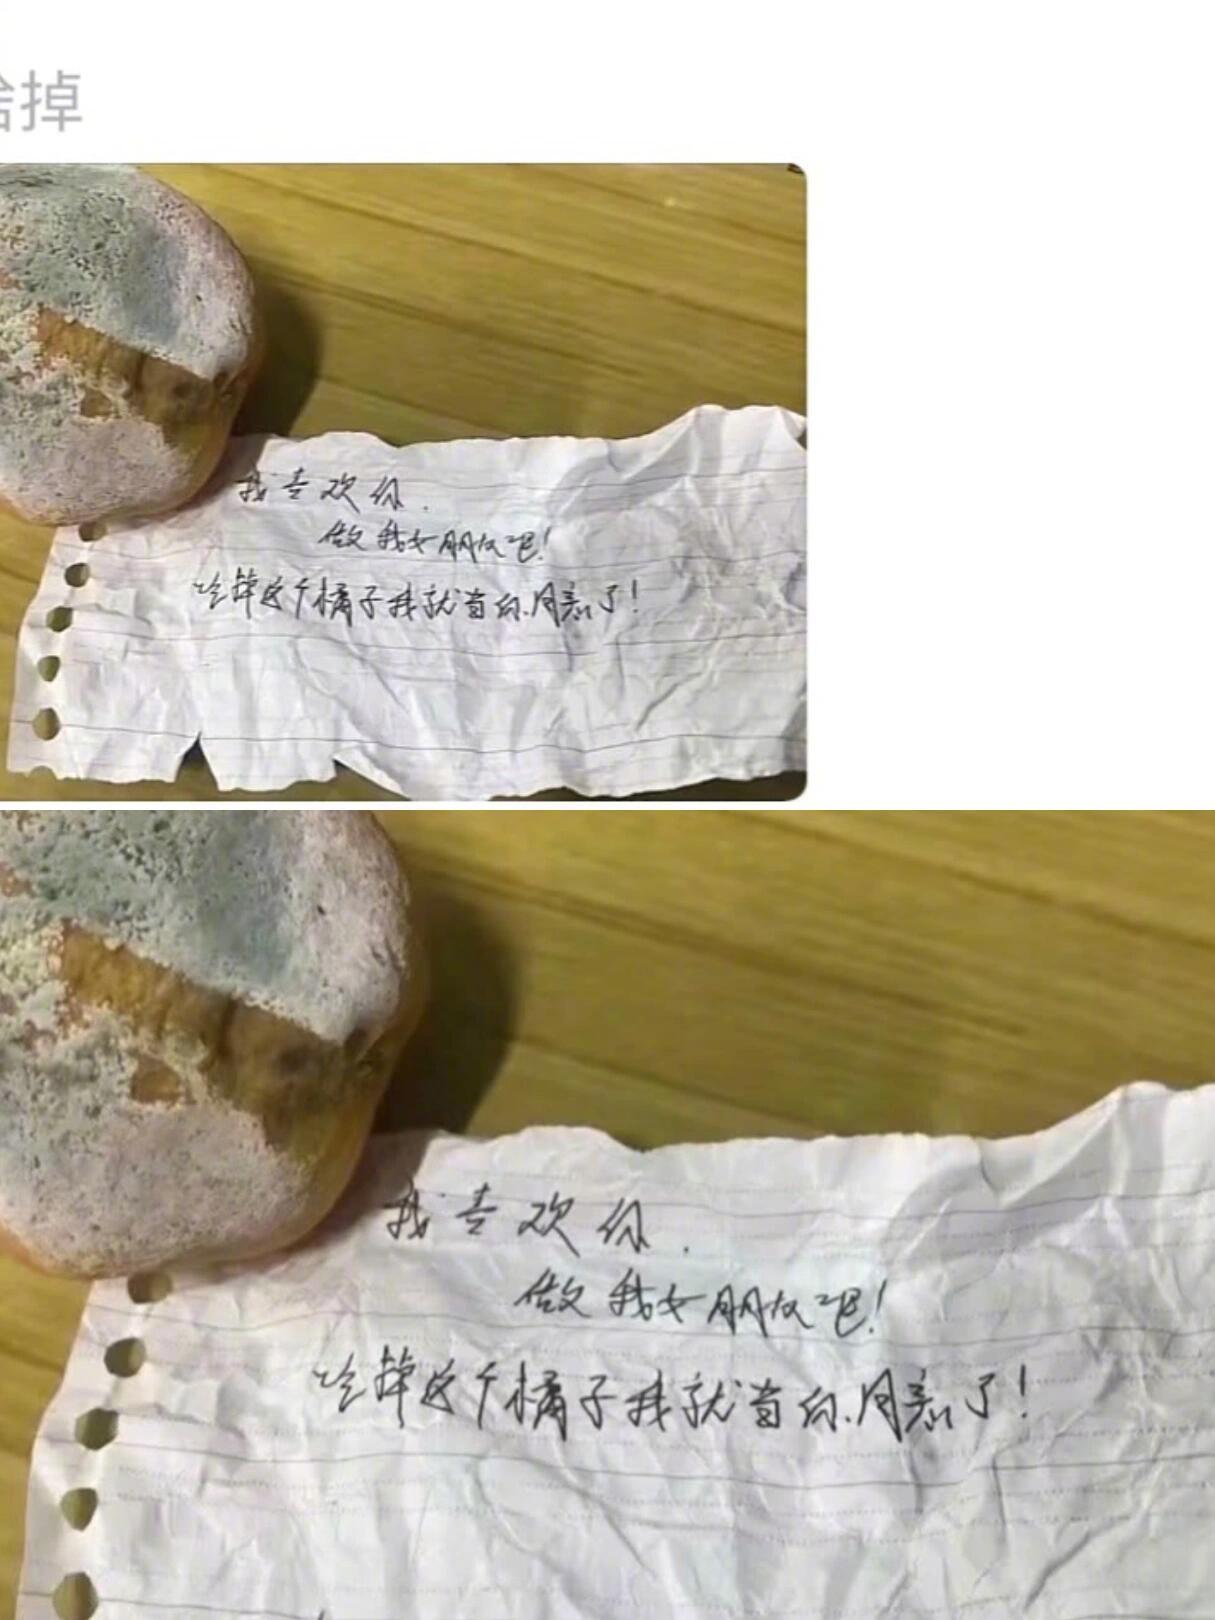 掉
我喜欢你.
做我女朋友吧!
吃掉这个橘子我就当你同意了!
我喜欢你.
做我女朋友吧!
吃掉这个橘子我就当你同意了!